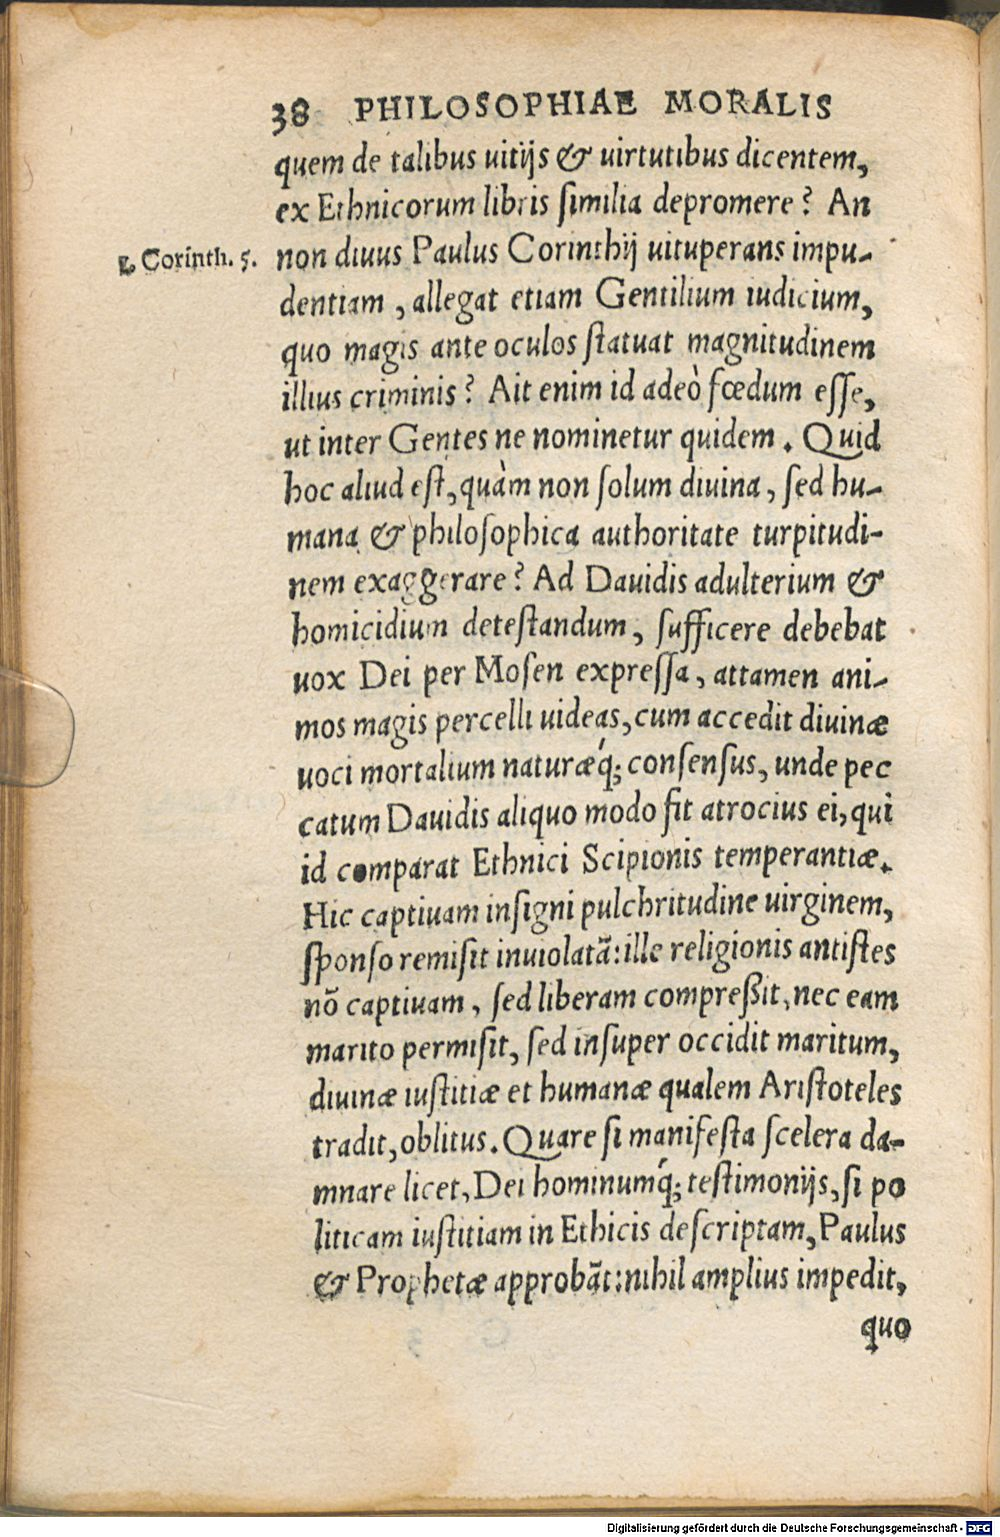 38 PHILOSOPHIAE MORALIS
quem de talibus uitijs & uirtutibus dicentem,
ex Ethnicorum libris ſimilia depromere? An
1. Corinth. 5.
non diuus Paulus Corinthij uituperans impu-
dentiam, allegat etiam Gentilium iudicium,
quo magis ante oculos ſtatuat magnitudinem
illius criminis? Ait enim id adeò fœdum eſſe,
ut inter Gentes ne nominetur quidem. Quid
hoc aliud eſt, quàm non ſolum diuina, ſed hu-
mana & philoſophica authoritate turpitudi-
nem exaggerare? Ad Dauidis adulterium &
homicidium deteſtandum, ſufficere debebat
uox Dei per Moſen expreſſa, attamen ani-
mos magis percelli uideas, cum accedit diuinæ
uoci mortalium naturæq́; conſenſus, unde pec
catum Dauidis aliquo modo fit atrocius ei, qui
id comparat Ethnici Scipionis temperantiæ.
Hic captiuam inſigni pulchritudine uirginem,
ſponſo remiſit inuiolatã: ille religionis antiſtes
nõ captiuam, ſed liberam compreßit, nec eam
marito permiſit, ſed inſuper occidit maritum,
diuinæ iuſtitiæ et humanæ qualem Ariſtoteles
tradit, oblitus. Quare ſi manifeſta ſcelera da-
mnare licet, Dei hominumq́; teſtimonijs, ſi po
liticam iuſtitiam in Ethicis deſcriptam, Paulus
& Prophetæ approbãt: nihil amplius impedit,
quo
Digitalisierung gefördert durch die Deutsche Forschungsgemeinschaft - DFG